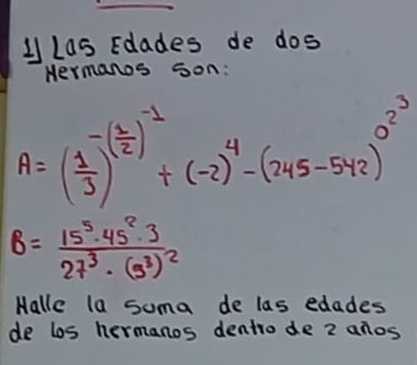 1) Las Edades de dos
Hermanos son:
A = (1/3)^-(1/2)^-1 + (-2)^4 - (245-542)^0^2^3
B = 15^5·45^2·3 / 27^3·(5^3)^2
Halle la suma de las edades
de los hermanos dentro de 2 años